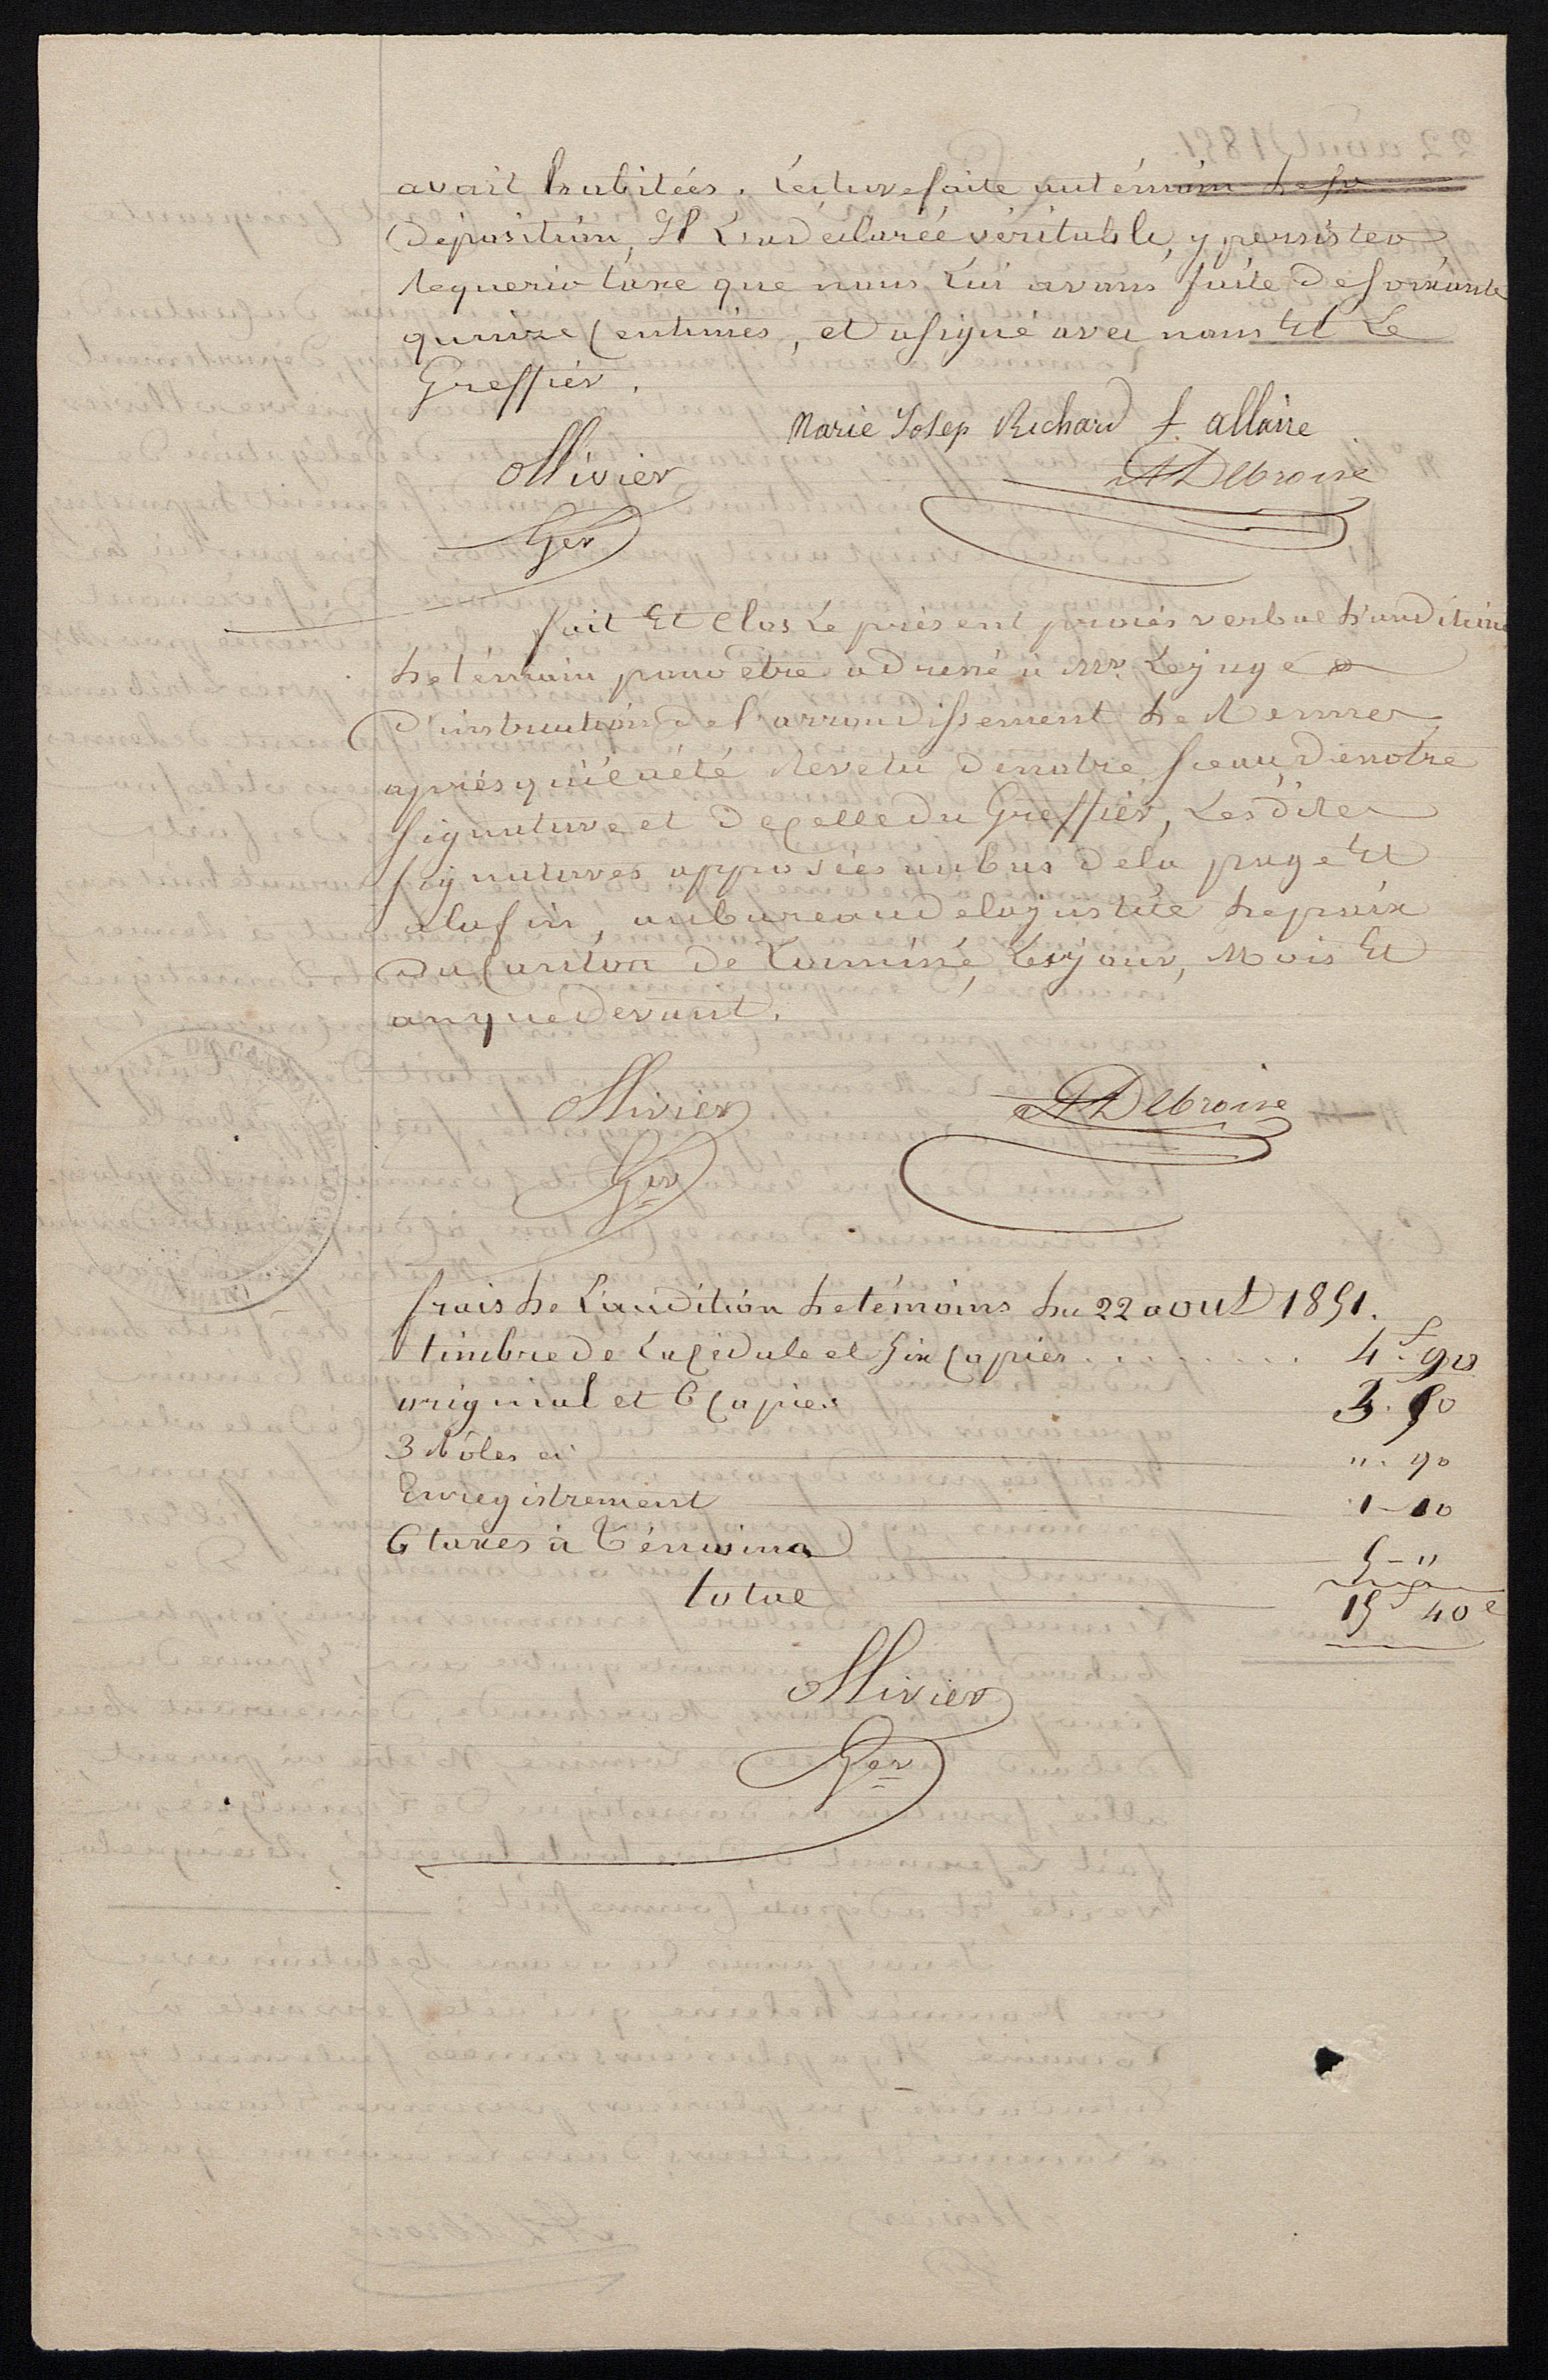 avait habitées. Lecture faite au témoin de sa
Déposition, Il L'a déclarée véritable, y persister
Requerir taxe que nous Lui avons faite de soixante
quinze Centimes, et a signé avec nous Et Le
Greffier.
Marie Josep Richard f. allaire
Ollivier
ADebroise
Ger
fait Et Clos Le présent procès verbal d'audition
de témoin pour être adressé à Mr. Le juge
D'instruction de l'arrondissement de Rennes
après qu'il a été Revetu de notre sceau, de notre
signature et de celle du Greffier, Les dites
signatures apposées au bas de la page Et
a la fin, au bureau de la justice de paix
du Canton de Locminé, Les jour, Mois Et
an que devant.
Ollivier
ADebroise
Ger
frais de L'audition de témoins du 22 aout 1851.
timbre de La Cédule et Six Copies . . . . . . . 4f. 90
original et 6 Copies 3. 50
3 Rôles ci ". 90
Enregistrement 1-10
6 taxes à Témoins 5-"
total 15f 40c
Ollivier
Ger